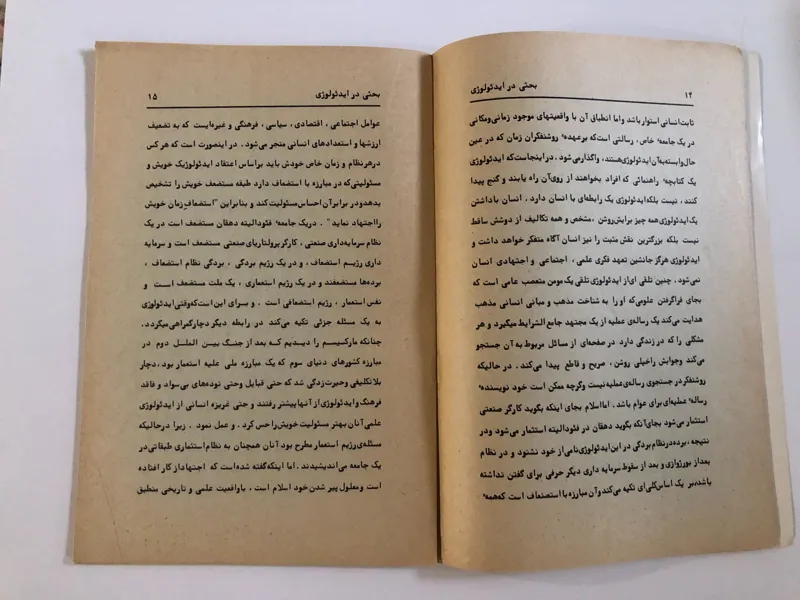 ۱۴
بحثی در ایدئولوژی
ثابت انسانی استوار باشد و اما انطباق آن با واقعیتهای موجود زمانی و مکانی
در یک جامعهٔ خاص، رسالتی است که بر عهدهٔ روشنفکران زمان که در عین
حال وابسته به آن ایدئولوژی هستند، واگذار می‌شود. در اینجاست که ایدئولوژی
یک کتابچهٔ راهنمائی که افراد بخواهند از روی آن راه یابند و گنج پیدا
کنند، نیست بلکه ایدئولوژی یک رابطه‌ای با انسان دارد. انسان با داشتن
یک ایدئولوژی همه چیز برایش روشن، مشخص و همه تکالیف از دوشش ساقط
نیست بلکه بزرگترین نقش مثبت را نیز انسان آگاه متفکر خواهد داشت و
ایدئولوژی هرگز جانشین تعهد فکری علمی، اجتماعی و اجتهادی انسان
نمی‌شود. چنین تلقی‌ای از ایدئولوژی تلقی یک مومن متعصب عامی است که
بجای فراگرفتن علومی که او را به شناخت مذهب و مبانی انسانی مذهب
هدایت می‌کند یک رساله‌ی عملیه از یک مجتهد جامع الشرایط میگیرد و هر
مشکلی را که در زندگی دارد در صفحه‌ای از مسائل مربوط به آن جستجو
می‌کند و جوابش را خیلی روشن، صریح و قاطع پیدا می‌کند. در حالیکه
روشنفکر در جستجوی رساله‌ی عملیه نیست وگرچه ممکن است خود نویسندهٔ
رسالهٔ عملیه‌ای برای عوام باشد. اما اسلام بجای اینکه بگوید کارگر صنعتی
استثمار می‌شود بجای آنکه بگوید دهقان در فئودالیته استثمار می‌شود و در
نتیجه، برده در نظام بردگی در این ایدئولوژی نامی از خود نشنود و در نظام
بعد از بورژوازی و بعد از سقوط سرمایه داری دیگر حرفی برای گفتن نداشته
باشد، بر یک اساس کلی‌ای تکیه می‌کند و آن مبارزه با استضعاف است که همهٔ
بحثی در ایدئولوژی
۱۵
عوامل اجتماعی، اقتصادی، سیاسی، فرهنگی و غیره‌ایست که به تضعیف
ارزشها و استعدادهای انسانی منجر می‌شود. در اینصورت است که هر کس
در هر نظام و زمان خاص خودش باید بر اساس اعتقاد ایدئولوژیک خویش و
مسئولیتی که در مبارزه با استضعاف دارد طبقه مستضعف خویش را تشخیص
بدهد و در برابر آن احساس مسئولیت کند و بنابراین "استضعاف زمان خویش
را اجتهاد نماید". در یک جامعهٔ فئودالیته دهقان مستضعف است در یک
نظام سرمایه‌داری صنعتی، کارگر پرولتاریای صنعتی مستضعف است و سرمایه
داری رژیم استضعاف، و در یک رژیم بردگی، بردگی نظام استضعاف،
برده‌ها مستضعفند و در یک رژیم استعماری، یک ملت مستضعف است و
نفس استعمار، رژیم استضعافی است. و برای این است که وقتی ایدئولوژی
به یک مسئله جزئی تکیه می‌کند در رابطه دیگر دچار گمراهی میگردد.
چنانکه مارکسیسم را دیدیم که بعد از جنگ بین الملل دوم در
مبارزه کشورهای دنیای سوم که یک مبارزه ملی علیه استعمار بود، دچار
بلاتکلیفی و حیرت زدگی شد که حتی قبایل وحتی توده‌های بی‌سواد و فاقد
فرهنگ و ایدئولوژی از آنها پیشتر رفتند و حتی غریزه انسانی از ایدئولوژی
علمی آنان بهتر مسئولیت خویش را حس کرد. و عمل نمود. زیرا در حالیکه
مسئله‌ی رژیم استعمار مطرح بود آنان همچنان به نظام استثماری طبقاتی در
یک جامعه می‌اندیشیدند. اما اینکه گفته شده است که اجتهاد از کار افتاده
است و معلول پیر شدن خود اسلام است، با واقعیت علمی و تاریخی منطبق